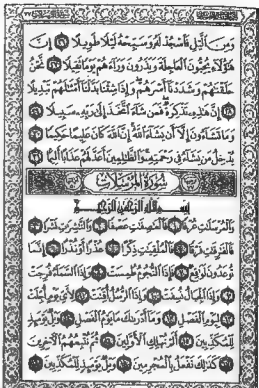 وَمِنَ ٱلَّيْلِ فَٱسْجُدْ لَهُۥ وَسَبِّحْهُ لَيْلًا طَوِيلًا ٢٦ إِنَّ
هَٰٓؤُلَآءِ يُحِبُّونَ ٱلْعَاجِلَةَ وَيَذَرُونَ وَرَآءَهُمْ يَوْمًا ثَقِيلًا ٢٧ نَّحْنُ
خَلَقْنَٰهُمْ وَشَدَدْنَآ أَسْرَهُمْ وَإِذَا شِئْنَا بَدَّلْنَآ أَمْثَٰلَهُمْ تَبْدِيلًا
٢٨ إِنَّ هَٰذِهِۦ تَذْكِرَةٌ فَمَن شَآءَ ٱتَّخَذَ إِلَىٰ رَبِّهِۦ سَبِيلًا ٢٩
وَمَا تَشَآءُونَ إِلَّآ أَن يَشَآءَ ٱللَّهُ إِنَّ ٱللَّهَ كَانَ عَلِيمًا حَكِيمًا ٣٠
يُدْخِلُ مَن يَشَآءُ فِى رَحْمَتِهِۦ وَٱلظَّٰلِمِينَ أَعَدَّ لَهُمْ عَذَابًا أَلِيمًۢا ٣١
سُورَةُ ٱلْمُرْسَلَاتِ
بِسْمِ ٱللَّهِ ٱلرَّحْمَٰنِ ٱلرَّحِيمِ
وَٱلْمُرْسَلَٰتِ عُرْفًا ١ فَٱلْعَٰصِفَٰتِ عَصْفًا ٢ وَٱلنَّٰشِرَٰتِ نَشْرًا ٣
فَٱلْفَٰرِقَٰتِ فَرْقًا ٤ فَٱلْمُلْقِيَٰتِ ذِكْرًا ٥ عُذْرًا أَوْ نُذْرًا ٦ إِنَّمَا
تُوعَدُونَ لَوَٰقِعٌ ٧ فَإِذَا ٱلنُّجُومُ طُمِسَتْ ٨ وَإِذَا ٱلسَّمَآءُ فُرِجَتْ
٩ وَإِذَا ٱلْجِبَالُ نُسِفَتْ ١٠ وَإِذَا ٱلرُّسُلُ أُقِّتَتْ ١١ لِأَىِّ يَوْمٍ أُجِّلَتْ
١٢ لِيَوْمِ ٱلْفَصْلِ ١٣ وَمَآ أَدْرَىٰكَ مَا يَوْمُ ٱلْفَصْلِ ١٤ وَيْلٌ يَوْمَئِذٍ
لِّلْمُكَذِّبِينَ ١٥ أَلَمْ نُهْلِكِ ٱلْأَوَّلِينَ ١٦ ثُمَّ نُتْبِعُهُمُ ٱلْءَاخِرِينَ
١٧ كَذَٰلِكَ نَفْعَلُ بِٱلْمُجْرِمِينَ ١٨ وَيْلٌ يَوْمَئِذٍ لِّلْمُكَذِّبِينَ ١٩